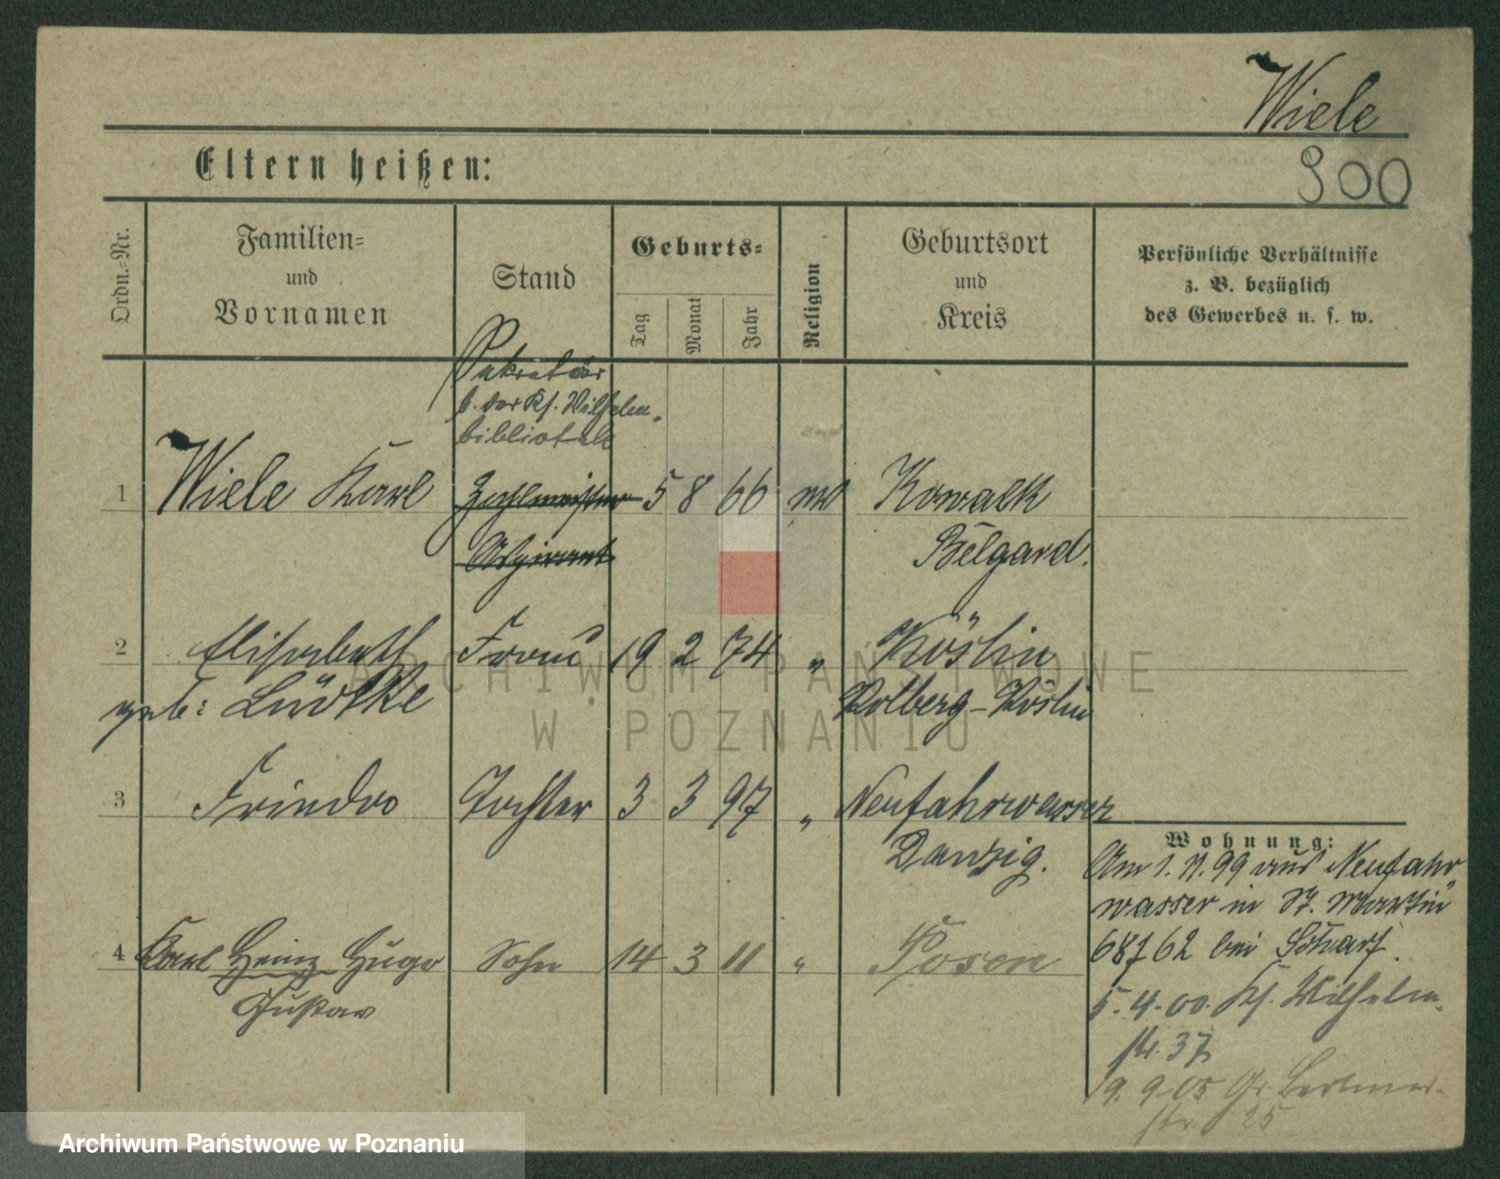 Wiele
300
Eltern heißen:
Ordn.-Nr.
Familien-
und
Vornamen
Stand
Geburts-
Tag
Monat
Jahr
Religion
Geburtsort
und
Kreis
Persönliche Verhältnisse
z. B. bezüglich
des Gewerbes u. s. w.
Sekretär
b. der Ks. Wilhelm-
bibliothek
1 Wiele Karl Zahlmeister 5 8 66 Kowalk
Aspirant Belgard.
2 Elisabeth Frau 19 2 74 " Köslin
geb: Lüdtke Kolberg-Köslin
3 Frieda Tochter 3 3 97 " Neufahrwasser
Danzig.
Wohnung:
Am 1. 11. 99 aus Neufahr
wasser in St. Martin
4 Karl Heinz Hugo Sohn 14 3 11 " Posen
Gustav
68/62 bei
5.4.00. Ks. Wilhelm-
str. 37
9. 9 05 Gr. Berliner-
str. 25
ARCHIWUM PAŃSTWOWE
W POZNANIU
Archiwum Państwowe w Poznaniu